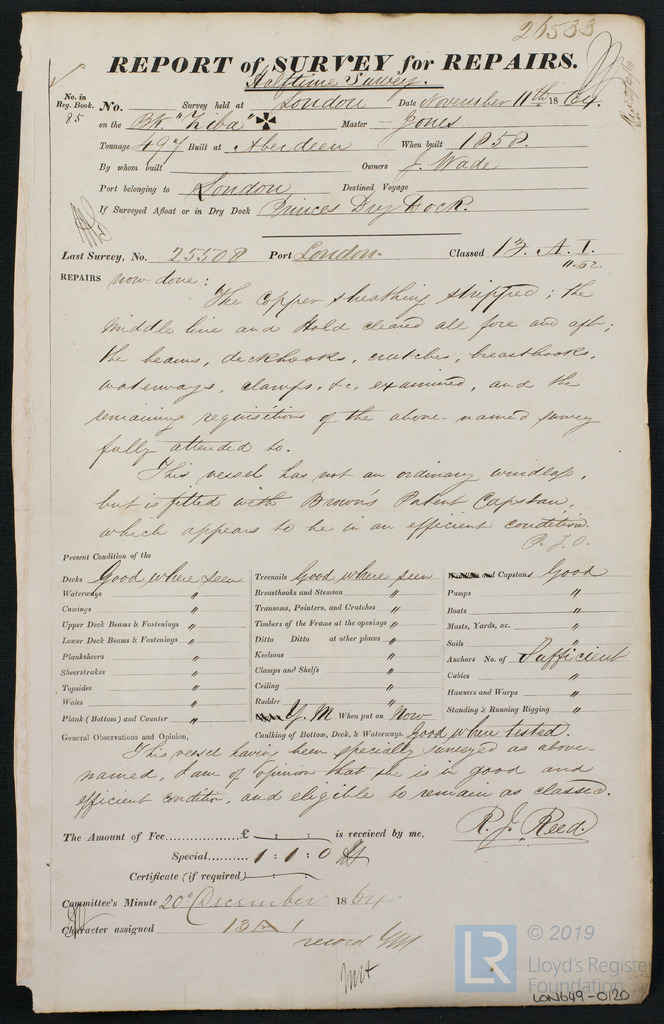 26533
REPORT of SURVEY for REPAIRS.
Halftime Survey.
No. in Reg. Book. No. Survey held at London Date November 11th 1864.
85 on the Bk. "Ziba" Master - Jones
Tonnage 497 Built at Aberdeen When built 1858.
By whom built Owners J. Wade
Port belonging to London Destined Voyage
If Surveyed Afloat or in Dry Dock Princes Dry Dock.
Last Survey, No. 25508 Port London. Classed 13. A.1.
REPAIRS now done:
The copper sheathing stripped; the
middle line and Hold cleared all fore and aft;
the beams, deckhooks, crutches, breasthooks,
waterways, clamps, &c. examined, and the
remaining requisitions of the above-named survey
fully attended to.
This vessel has not an ordinary windlass,
but is fitted with Brown's Patent Capstan,
which appears to be in an efficient condition.
P.T.O.
Present Condition of the
Decks Good where seen
Waterways "
Comings "
Upper Deck Beams & Fastenings "
Lower Deck Beams & Fastenings "
Planksheers "
Sheerstrakes "
Topsides "
Wales "
Plank (Bottom) and Counter "
Treenails Good where seen
Breasthooks and Stemson "
Transoms, Pointers, and Crutches "
Timbers of the Frame at the openings "
Ditto Ditto at other places "
Keelsons "
Clamps and Shelfs "
Ceiling "
Rudder "
Y.M When put on Now
Caulking of Bottom, Deck, & Waterways. Good where tested.
and Capstans Good
Pumps "
Boats "
Masts, Yards, &c. "
Sails "
Anchors No. of Sufficient
Cables "
Hawsers and Warps "
Standing & Running Rigging "
General Observations and Opinion,
This vessel having been specially surveyed as above-
named, I am of opinion that she is in good and
efficient condition, and eligible to remain as classed.
R. J. Reed.
The Amount of Fee £ : : is received by me,
Special 1 : 1 : 0
Certificate (if required)
Committee's Minute 20th December 1864
Character assigned 13 A 1
record YM
LR © 2019
Lloyd's Register
Foundation
LON649-0120